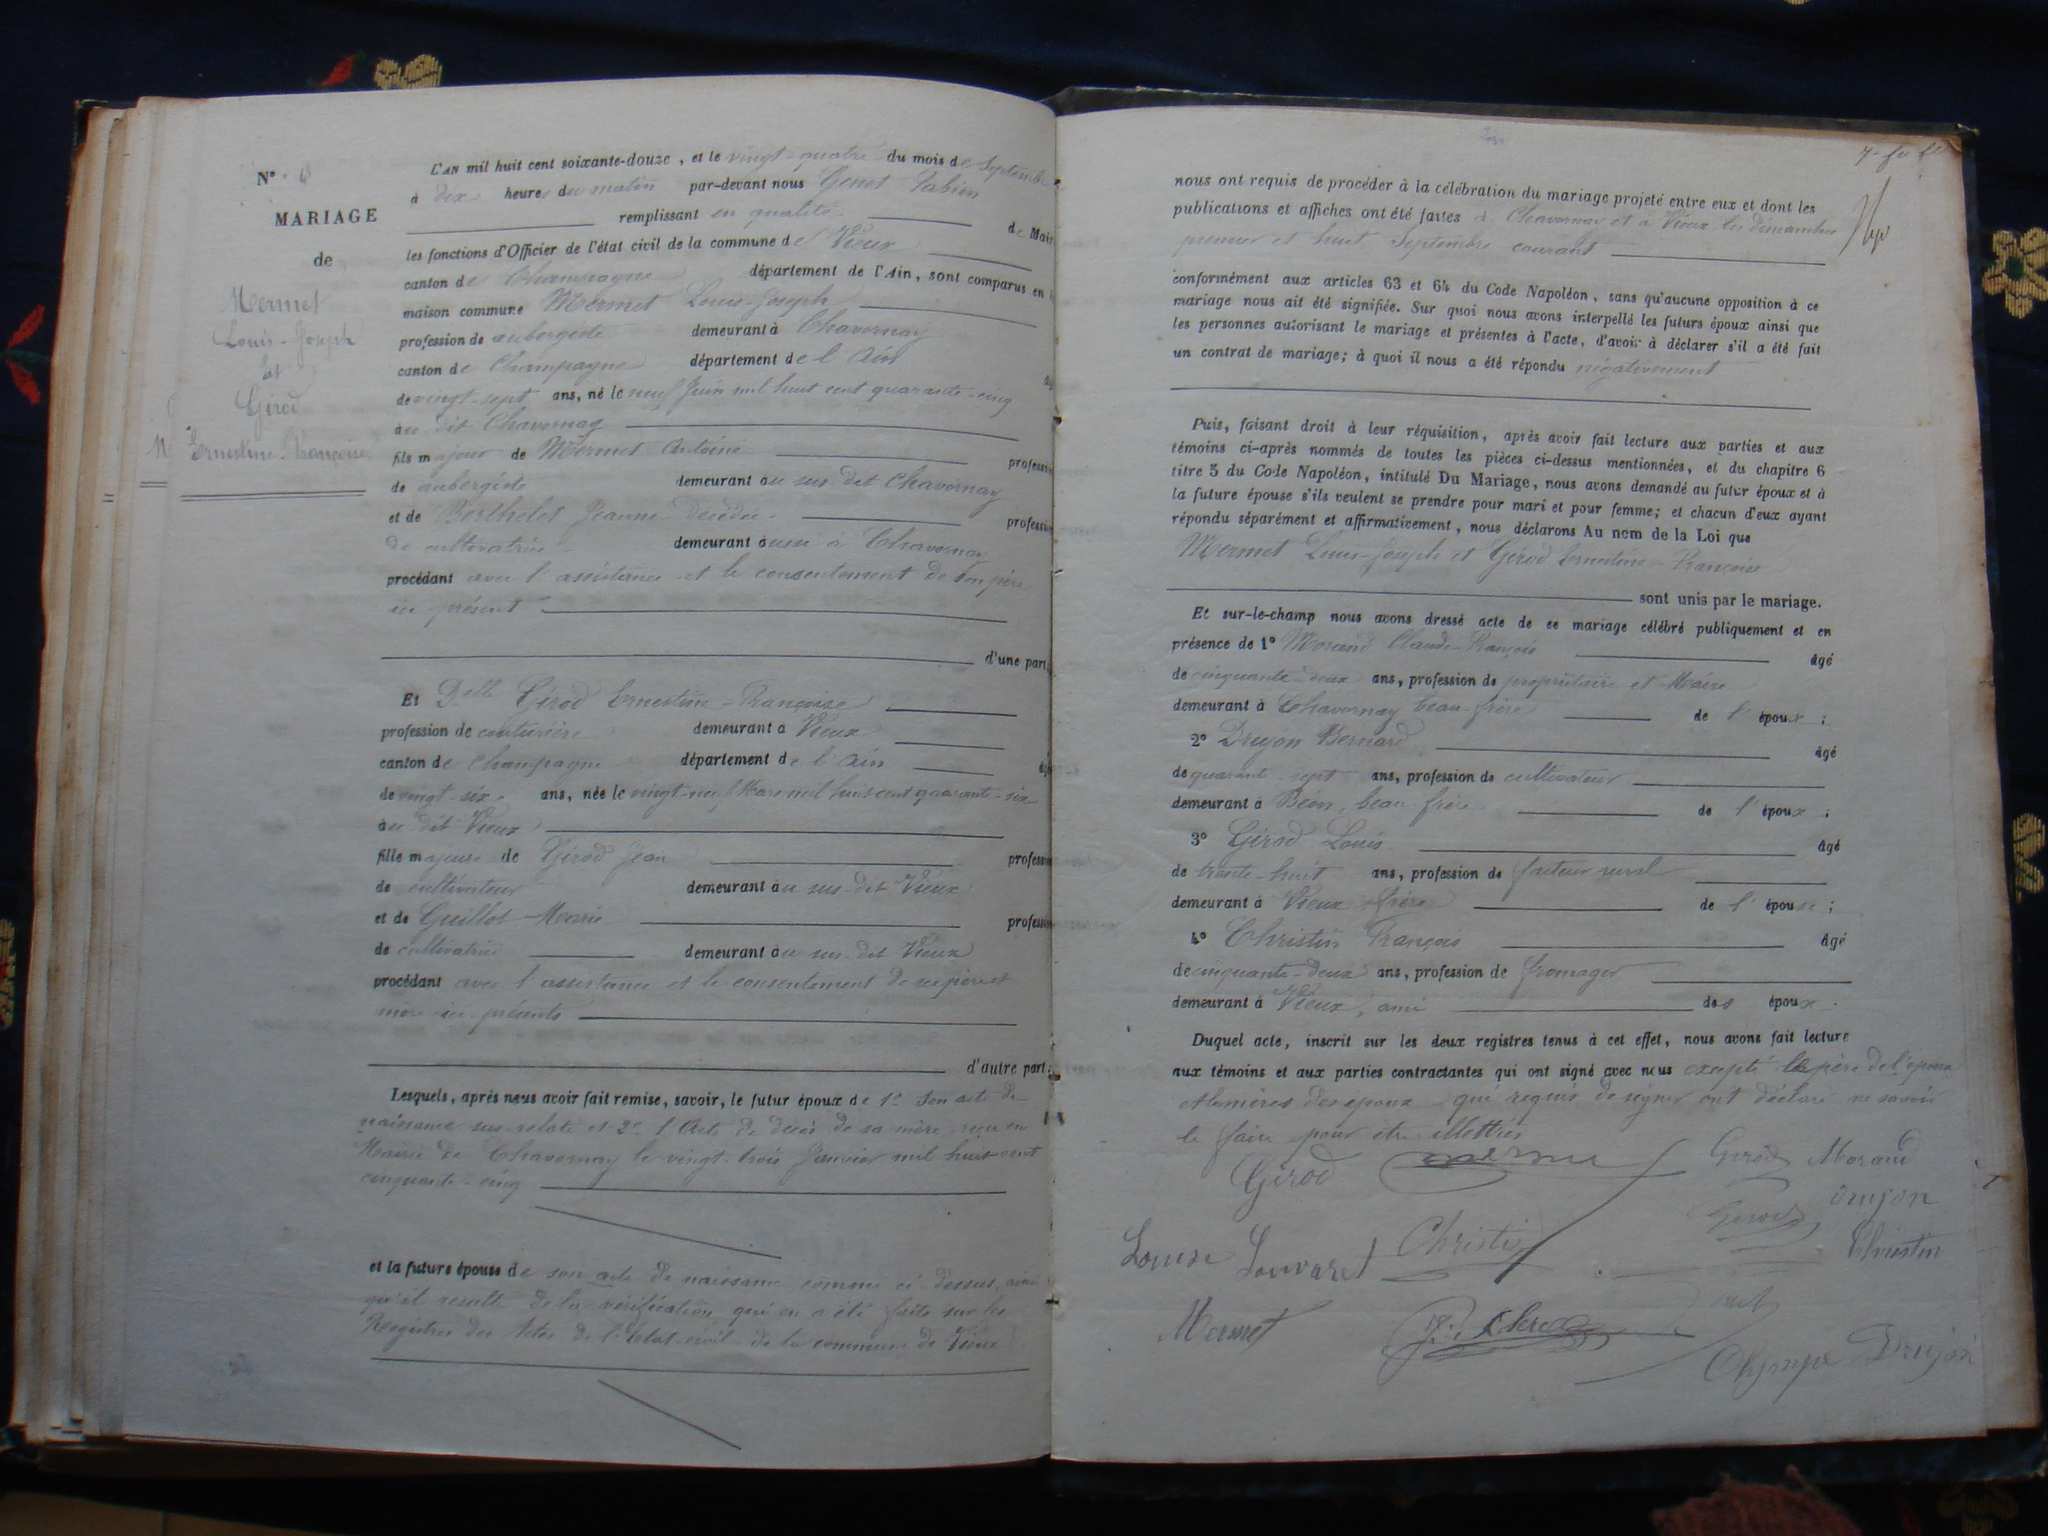 N°
MARIAGE
de
Mermet
Louis-Joseph
et
Gérod
Ernestine-Françoise
L'AN mil huit cent soixante-douze, et le vingt-quatre du mois de Septembre
à dix heures du matin par-devant nous Genet Fabien
remplissant en qualité de Mair
les fonctions d'Officier de l'état civil de la commune de Vieux
canton de Champagne département de l'Ain, sont comparus en
maison commune Mermet Louis-Joseph
profession de aubergiste demeurant à Chavornay
canton de Champagne département de l'Ain
de vingt-sept ans, né le neuf Juin mil huit cent quarante-cinq
au dit Chavornay
fils majeur de Mermet Antoine profession
de aubergiste demeurant au sus dit Chavornay
et de Berthelet Jeanne décédée profession
de cultivatrice demeurant aussi à Chavornay
procédant avec l'assistance et le consentement de son père
ici présent
d'une part,
Et Delle Gérod Ernestine-Françoise
profession de couturière demeurant à Vieux
canton de Champagne département de l'Ain âgée
de vingt-six ans, née le vingt-neuf Mars mil huit cent quarante-six
au dit Vieux
fille majeure de Gérod Jean profession
de cultivateur demeurant au sus-dit Vieux
et de Guillot Marie profession
de cultivatrice demeurant au sus-dit Vieux
procédant avec l'assistance et le consentement de ses père et
mère ici présents
d'autre part;
Lesquels, après nous avoir fait remise, savoir, le futur époux de 1° Son acte de
naissance sus relaté et 2° l'Acte de décès de sa mère reçu en
Mairie de Chavornay le vingt-trois Janvier mil huit cent
cinquante-cinq
et la future épouse de son acte de naissance comme ci-dessus, ainsi
qu'il résulte de la vérification qui en a été faite sur les
Registres des Actes de l'Etat-civil de la commune de Vieux
nous ont requis de procéder à la célébration du mariage projeté entre eux et dont les
publications et affiches ont été faites à Chavornay et à Vieux les dimanches
premier et huit Septembre courant
conformément aux articles 63 et 64 du Code Napoléon, sans qu'aucune opposition à ce
mariage nous ait été signifiée. Sur quoi nous avons interpellé les futurs époux ainsi que
les personnes autorisant le mariage et présentes à l'acte, d'avoir à déclarer s'il a été fait
un contrat de mariage; à quoi il nous a été répondu négativement
Puis, faisant droit à leur réquisition, après avoir fait lecture aux parties et aux
témoins ci-après nommés de toutes les pièces ci-dessus mentionnées, et du chapitre 6
titre 5 du Code Napoléon, intitulé Du Mariage, nous avons demandé au futur époux et à
la future épouse s'ils veulent se prendre pour mari et pour femme; et chacun d'eux ayant
répondu séparément et affirmativement, nous déclarons Au nom de la Loi que
Mermet Louis-Joseph et Gérod Ernestine-Françoise
sont unis par le mariage.
Et sur-le-champ nous avons dressé acte de ce mariage célébré publiquement et en
présence de 1° Morand Claude-François âgé
de cinquante-deux ans, profession de propriétaire et Maire
demeurant à Chavornay beau-frère de l'époux;
2° Drujon Bernard âgé
de quarante-sept ans, profession de cultivateur
demeurant à Béon, beau-frère de l'époux;
3° Gérod Louis âgé
de trente-huit ans, profession de facteur rural
demeurant à Vieux frère de l'épouse;
4° Christin François âgé
de cinquante-deux ans, profession de fromager
demeurant à Vieux, ami des époux.
Duquel acte, inscrit sur les deux registres tenus à cet effet, nous avons fait lecture
aux témoins et aux parties contractantes qui ont signé avec nous excepté le père de l'époux
qui requis de signer ont déclaré ne savoir
le faire pour être illettrés
Gérod Gérod Morand
Gerod Drujon
Louise Louvaret Christin Christin
Mermet
Olympe Drujon